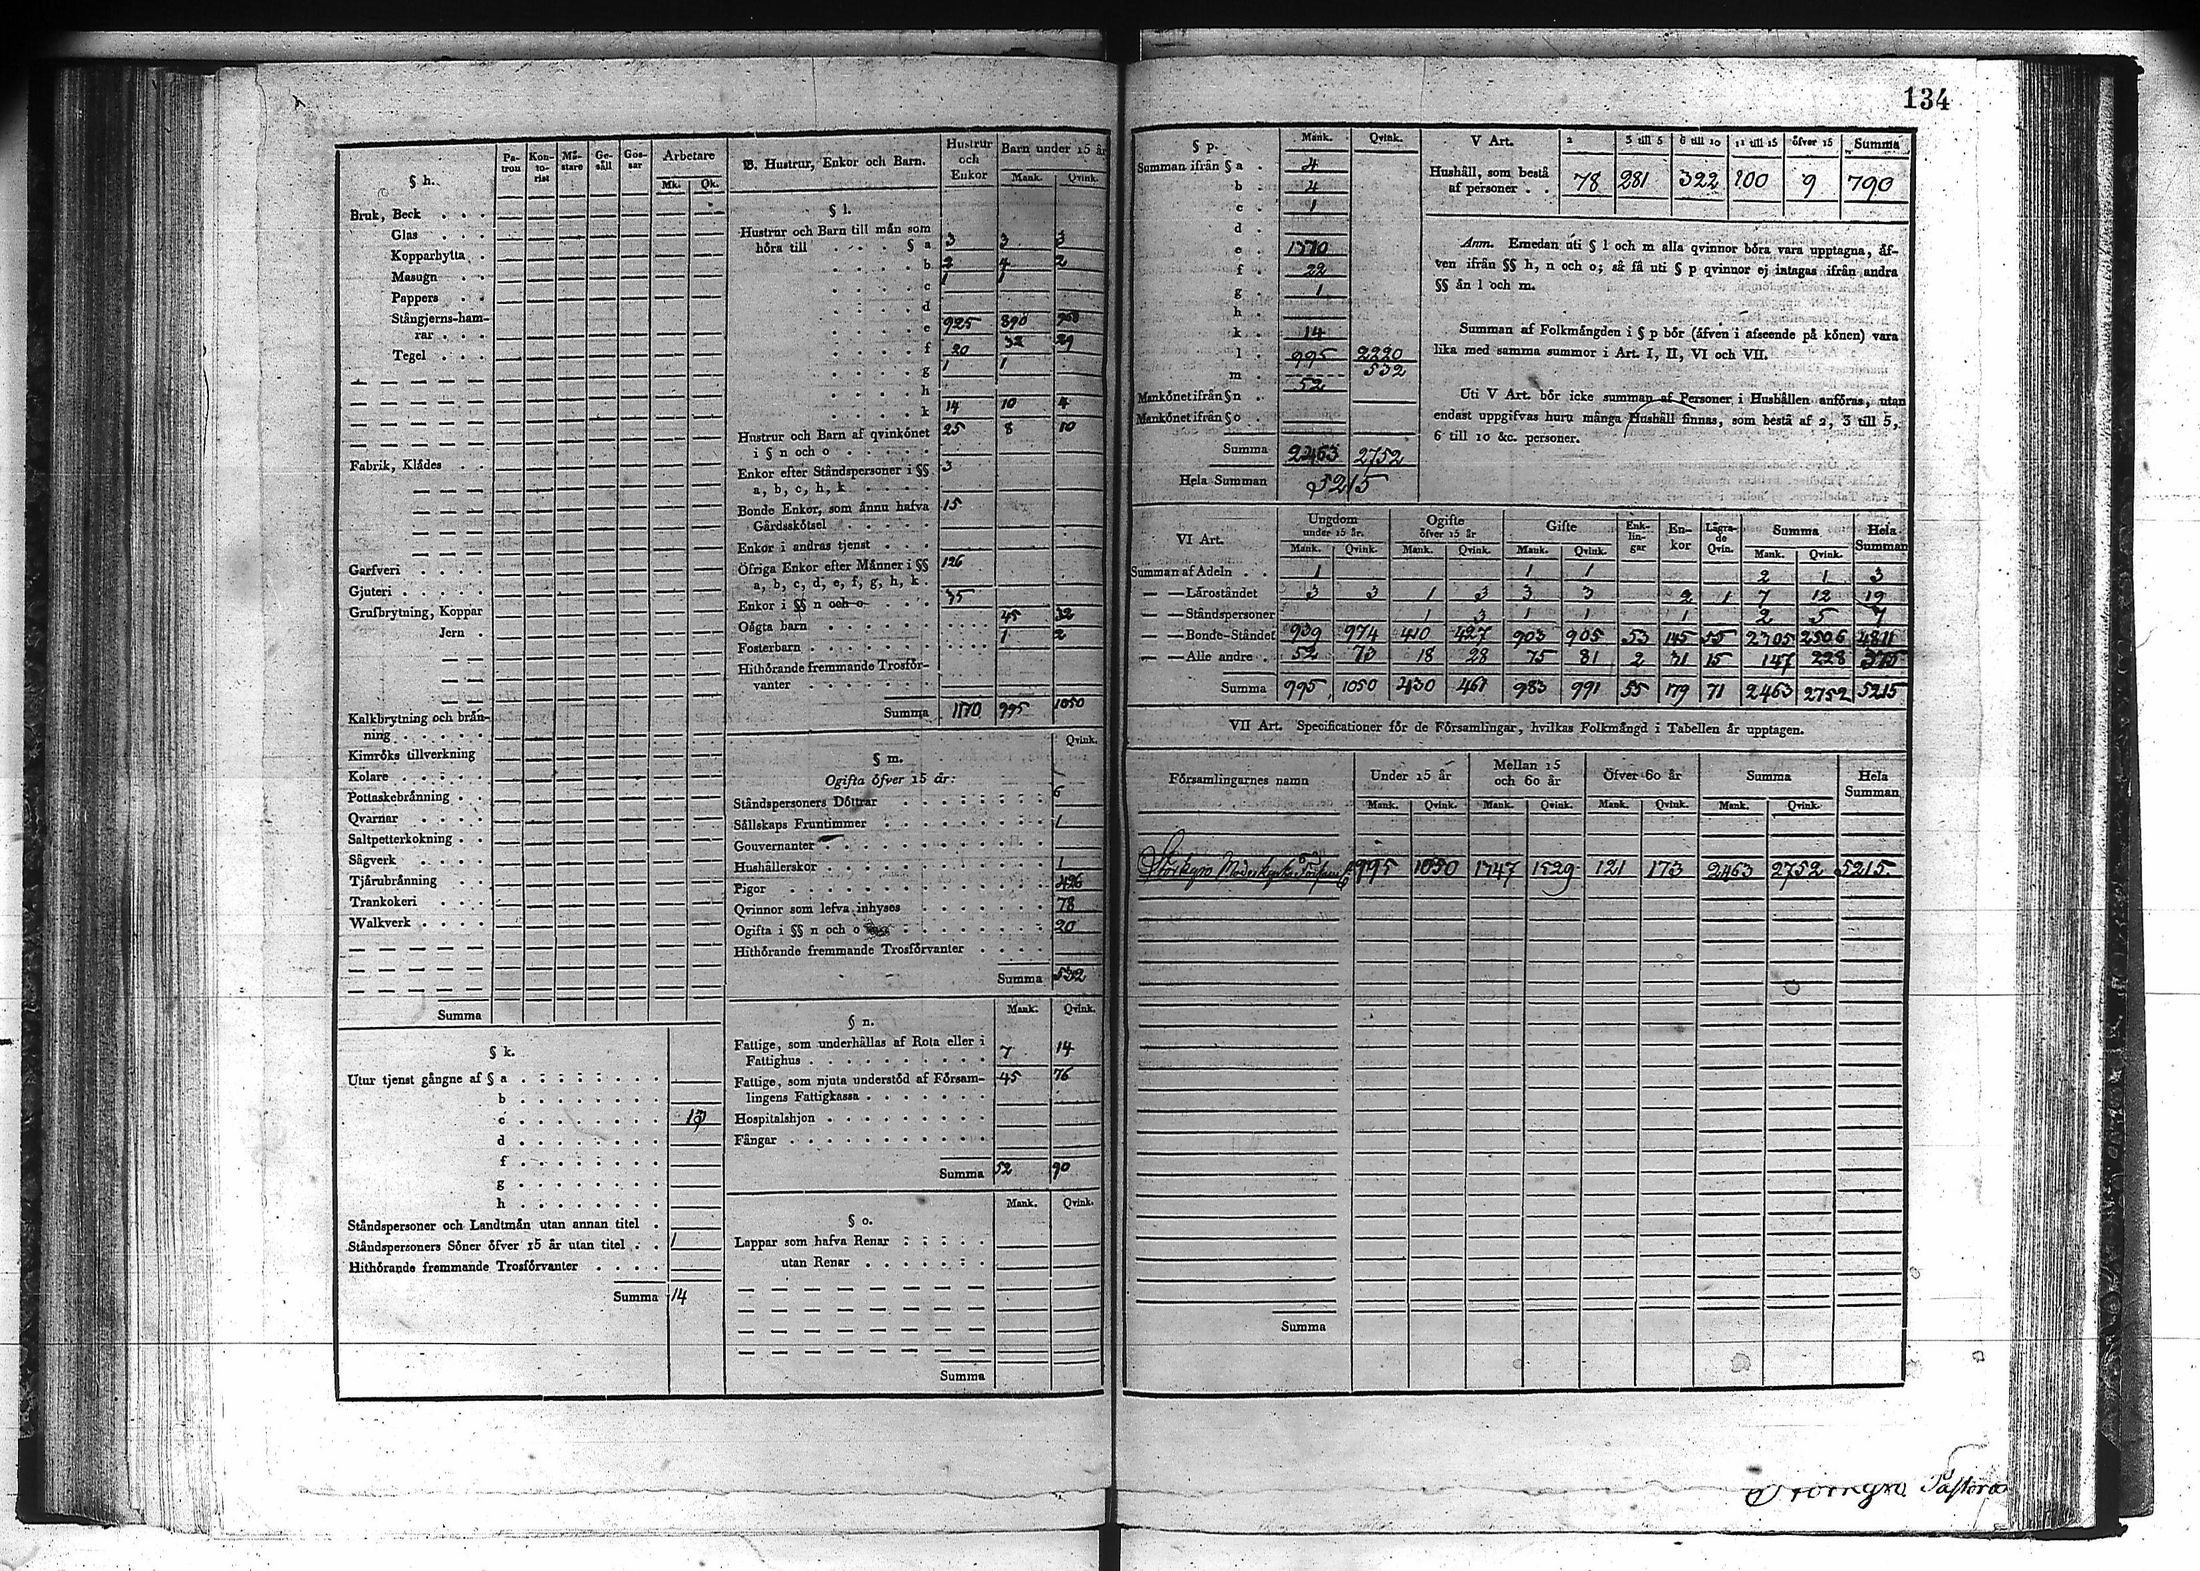 134
§ h.
Pa-
tron
Kon-
to-
rist
Mä-
stare
Ge-
säll
Gos-
sar
Arbetare
Mk. Qk.
Bruk, Beck . . .
Glas . . .
Kopparhytta . .
Masugn . . .
Pappers . . .
Stångjerns-ham-
rar . . .
Tegel . . .
Fabrik, Klädes . .
Garfveri . . . .
Gjuteri . . . . .
Grufbrytning, Koppar
Jern .
Kalkbrytning och brän-
ning . . . . . .
Kimröks tillverkning
Kolare . . . . . .
Pottaskebränning . .
Qvarnar . . . .
Saltpetterkokning . .
Sågverk . . . .
Tjärubränning . . .
Trankokeri . . .
Walkverk . . . .
Summa
§ k.
Utur tjenst gångne af § a . . . . . . .
b . . . . . . .
c . . . . . . . 13
d . . . . . . .
f . . . . . . .
g . . . . . . .
h . . . . . . .
Ståndspersoner och Landtmän utan annan titel .
Ståndspersoners Söner öfver 15 år utan titel . . 1
Hithörande fremmande Trosförvanter . . . .
Summa 14
B. Hustrur, Enkor och Barn.
Hustrur
och
Enkor
Barn under 15 år
Mank. Qvink.
§ l.
Hustrur och Barn till män som
höra till . . . § a 3 3 3
b 2 4 2
c 1 1
d
e 925 890 968
f 20 32 29
g 1 1
h
k 14 10 4
Hustrur och Barn af qvinkönet 25 8 10
i § n och o . . . . .
Enkor efter Ståndspersoner i §§ 3
a, b, c, h, k . . . . .
Bonde Enkor, som ännu hafva 15
Gårdsskötsel . . . . .
Enkor i andras tjenst . . .
Öfriga Enkor efter Männer i §§ 126
a, b, c, d, e, f, g, h, k .
Enkor i §§ n och o . . . 35
Oägta barn . . . . . . 45 32
Fosterbarn . . . . . . 1 2
Hithörande fremmande Trosför-
vanter . . . . . . .
Summa 1170 995 1050
§ m.
Qvink.
Ogifta öfver 15 år:
Ståndspersoners Döttrar . . . . . . . 6
Sällskaps Fruntimmer . . . . . . . . 1
Gouvernanter . . . . . . . .
Hushållerskor . . . . . . . . 1
Pigor . . . . . . . . . . 426
Qvinnor som lefva inhyses . . . . . . . 78
Ogifta i §§ n och o . . . . . . . 20
Hithörande fremmande Trosförvanter . . . .
Summa 532
§ n.
Mank. Qvink.
Fattige, som underhållas af Rota eller i
Fattighus . . . . . . . . . 7 14
Fattige, som njuta understöd af Försam- 45 76
lingens Fattigkassa . . . . . .
Hospitalshjon . . . . . . . . .
Fångar . . . . . . . . . . .
Summa 52 90
§ o.
Mank. Qvink.
Lappar som hafva Renar . . . . .
utan Renar . . . . . . .
Summa
§ p.
Mank. Qvink.
Summan ifrån § a . 4
b . 4
c . 1
d .
e . 1370
f . 22
g . 1
h .
k . 14
l . 995 2220
m . 532
Mankönet ifrån § n . 52
Mankönet ifrån § o .
Summa 2463 2752
Hela Summan 5215
V Art. 2 3 till 5 6 till 10 11 till 15 öfver 15 Summa
Hushåll, som bestå
af personer . . 78 281 322 100 9 790
Anm. Emedan uti § l och m alla qvinnor böra vara upptagna, äf-
ven ifrån §§ h, n och o; så få uti § p qvinnor ej intagas ifrån andra
§§ än l och m.
Summan af Folkmängden i § p bör (äfven i afseende på könen) vara
lika med samma summor i Art. I, II, VI och VII.
Uti V Art. bör icke summan af Personer i Hushållen anföras, utan
endast uppgifvas huru många Hushåll finnas, som bestå af 2, 3 till 5,
6 till 10 &c. personer.
VI Art.
Ungdom
under 15 år.
Ogifte
öfver 15 år
Gifte
Enk-
lin-
gar
En-
kor
Lägra-
de
Qvin.
Summa
Hela
Summan
Mank. Qvink. Mank. Qvink. Mank. Qvink. Mank. Qvink.
Summan af Adeln . . 1 1 1 2 1 3
— — Läroståndet 3 3 1 3 3 3 2 1 7 12 19
— — Ståndspersoner 1 3 1 1 1 2 5 7
— — Bonde-Ståndet 939 974 410 427 903 905 53 145 55 2305 2506 4811
— — Alle andre . 52 73 18 28 75 81 2 31 15 147 228 375
Summa 995 1050 430 461 983 991 55 179 71 2463 2752 5215
VII Art. Specificationer för de Församlingar, hvilkas Folkmängd i Tabellen är upptagen.
Församlingarnes namn
Under 15 år
Mellan 15
och 60 år
Öfver 60 år
Summa
Hela
Summan
Mank. Qvink. Mank. Qvink. Mank. Qvink. Mank. Qvink.
Storkyro Moderkyrko 995 1050 1347 1529 121 173 2463 2752 5215.
Summa
Storkyro Pastorat